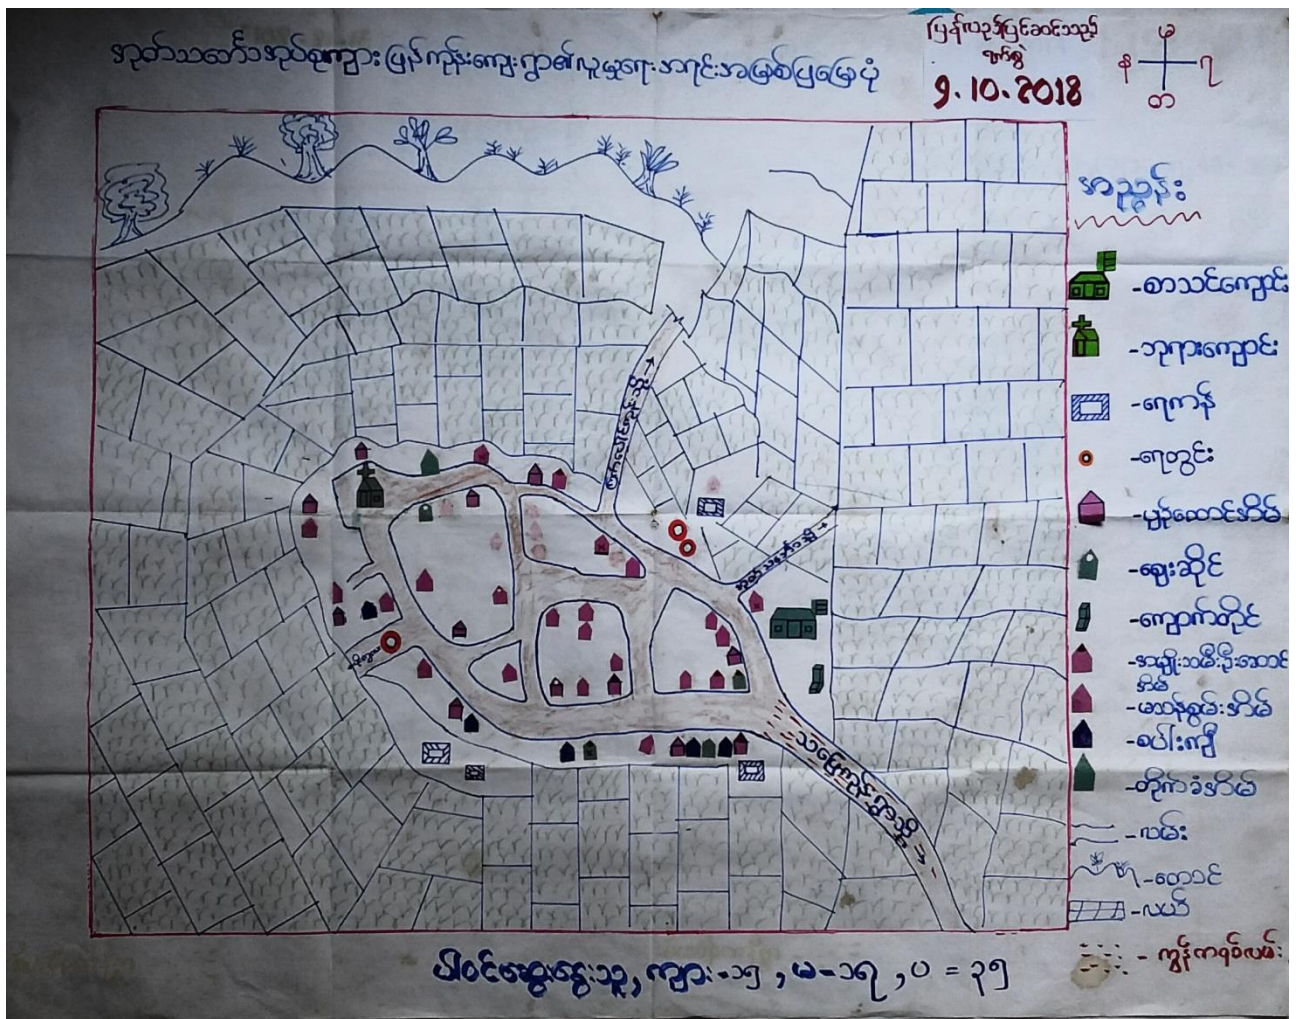 အုတ်သဘော်အုပ်စု၊ကျားမြန်ကုန်းကျေးရွာ၏လူမှုရေးအရင်းအမြစ်ပြမြေပုံ
ပြန်လည်ပြင်ဆင်သည့်
ရက်စွဲ
9.10.2018
မ
န
ရ
တ
အညွှန်း
-စာသင်ကျောင်း
-ဘုရားကျောင်း
-ရေကန်
-ရေတွင်း
-မုန်ထောင်အိမ်
-ဈေးဆိုင်
-ကျောက်တိုင်
-အမျိုးသမီးဦးဆောင်
အိမ်
-မသန်စွမ်းအိမ်
-စပါးကျီ
-တိုက်ခံအိမ်
-လမ်း
-တောင်
-လယ်
-ကွန်ကရစ်လမ်း
ပါဝင်ဆွေးနွေးသူ, ကျား-၁၅ , မ-၁၇ , ပ = ၃၅